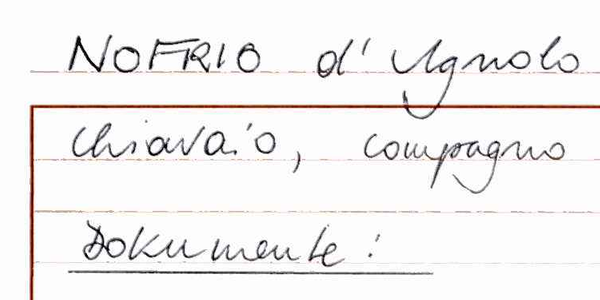 NOFRIO d' Agnolo
Chiavaio, compagno
Dokumente: